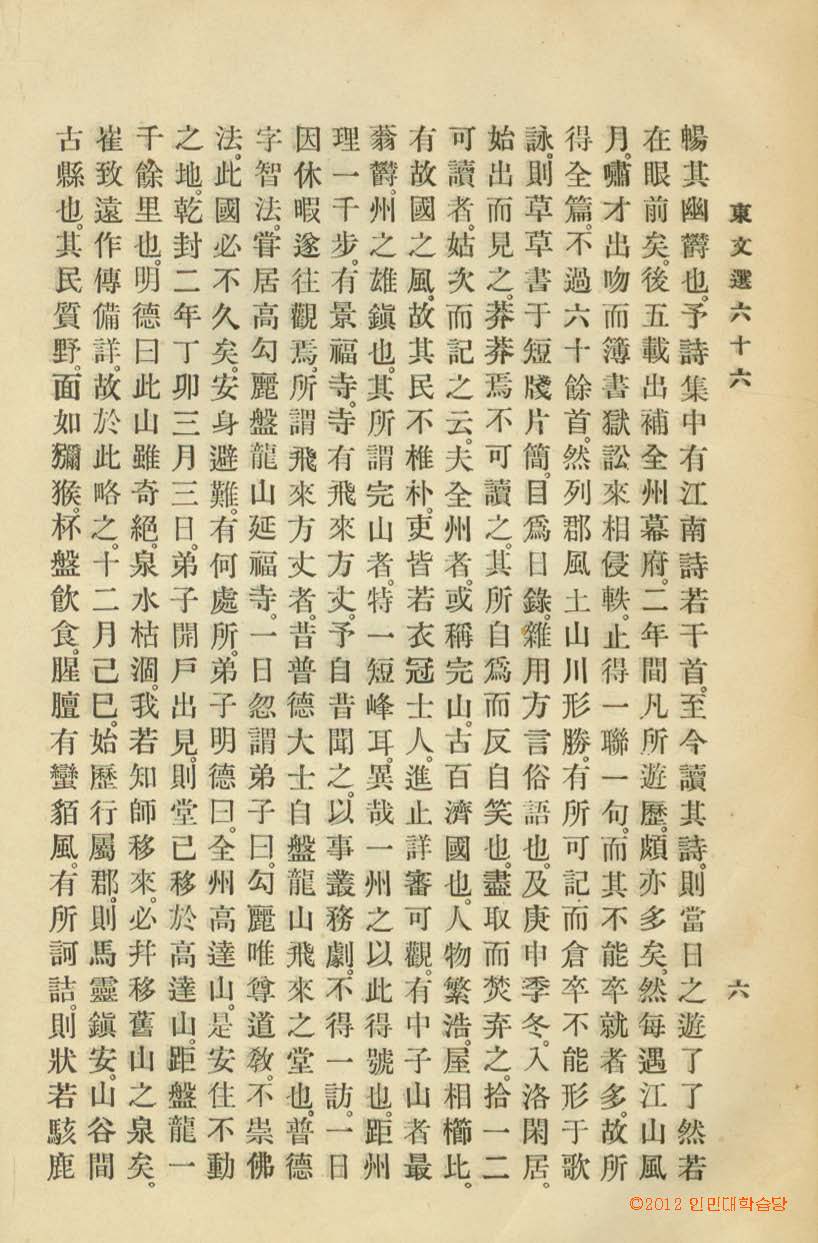 東文選六十六
六
暢其幽欝也。予詩集中有江南詩若干首。至今讀其詩。則當日之遊了了然若
在眼前矣。後五載出補全州幕府。二年間凡所遊歷。頗亦多矣。然每遇江山風
月。嘯才出吻而簿書獄訟來相侵軼。止得一聯一句。而其不能卒就者多。故所
得全篇。不過六十餘首。然列郡風土山川形勝。有所可記而倉卒不能形于歌
詠。則草草書于短牋片簡。目爲日錄。雜用方言俗語也。及庚申季冬。入洛閑居。
始出而見之。莽莽焉不可讀之。其所自爲而反自笑也。盡取而焚弃之。拾一二
可讀者。姑次而記之云。夫全州者。或稱完山。古百濟國也。人物繁浩。屋相櫛比。
有故國之風。故其民不椎朴。吏皆若衣冠士人。進止詳審可觀。有中子山者最
蓊欝。州之雄鎭也。其所謂完山者。特一短峰耳。異哉一州之以此得號也。距州
理一千步。有景福寺。寺有飛來方丈。予自昔聞之。以事叢務劇。不得一訪。一日
因休暇遂往觀焉。所謂飛來方丈者。昔普德大士自盤龍山飛來之堂也。普德
字智法。甞居高勾麗盤龍山延福寺。一日忽謂弟子曰。勾麗唯尊道敎。不崇佛
法。此國必不久矣。安身避難。有何處所。弟子明德曰。全州高達山。是安住不動
之地。乾封二年丁卯三月三日。弟子開戶出見。則堂已移於高達山。距盤龍一
千餘里也。明德曰此山雖奇絕。泉水枯涸。我若知師移來。必幷移舊山之泉矣。
崔致遠作傳備詳。故於此略之。十二月己巳。始歷行屬郡。則馬靈鎭安。山谷間
古縣也。其民質野。面如獼猴。杯盤飮食。腥膻有蠻貊風。有所訶詰。則狀若駭鹿
©2012 인민대학습당